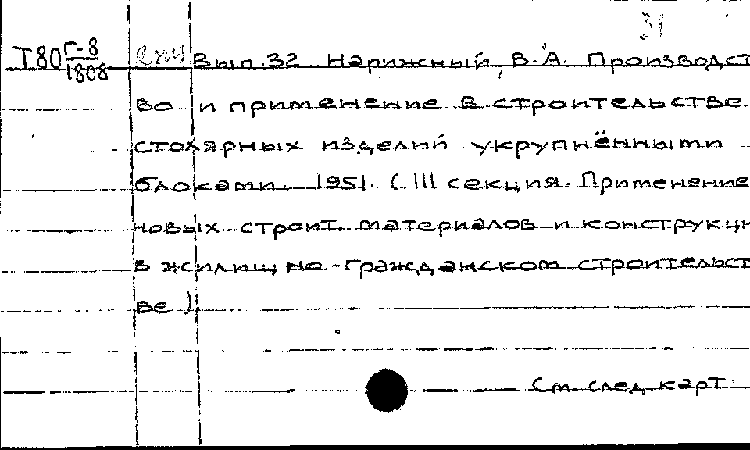 31
Т80 Г-8/1808 Вып. 32 Нарижный, В.А. Производст
во и применение в строительстве
столярных изделий укрупнёнными
блоками. 1951. (III секция. Применение
новых строит. материалов и конструкци
в жилищно-гражданском строительст
ве)
См. след. карт.